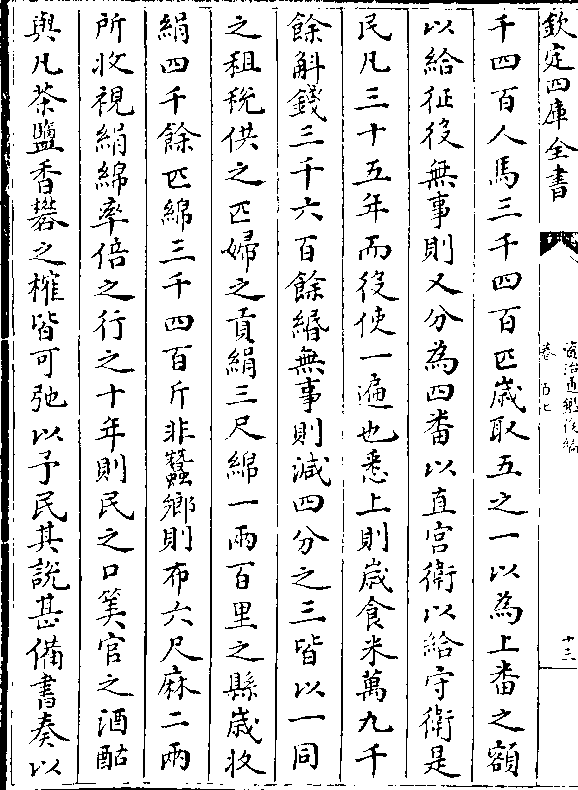 欽定四庫全書
資治通鑑後編
卷一百七
十三
千四百人馬三千四百匹歲取五之一以為上番之額
以給征役無事則又分為四番以直宮衛以給守衛是
民凡三十五年而役使一遍也悉上則歲食米萬九千
餘斛錢三千六百餘緡無事則減四分之三皆以一同
之租稅供之匹婦之貢絹三尺綿一兩百里之縣歲收
絹四千餘匹綿三千四百斤非蠶鄉則布六尺麻二兩
所收視絹綿率倍之行之十年則民之口筭官之酒酤
與凡茶鹽香礬之榷皆可弛以予民其說甚備書奏以